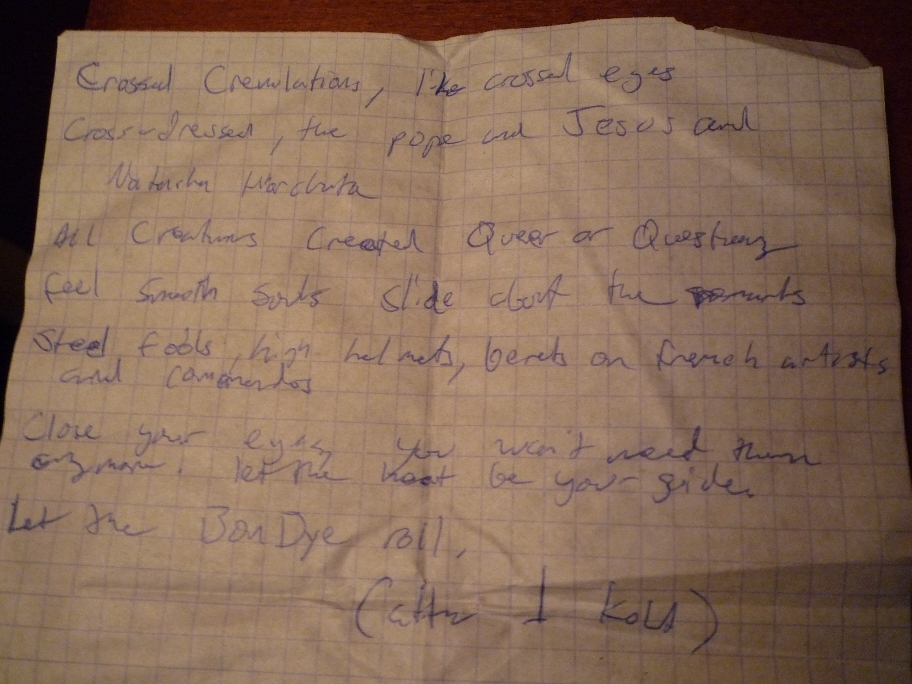 Crossed Crenulations, like crossed eyes
Cross-dressed, the pope and Jesus and
Natasha
All Creatures Created Queer or Questiong
Feel Smooth Souls Slide about the
Steel fools, high helmets, berets on french artists
and commandos
Close your eyes, you won't need them
anymore. let the heat be your guide.
Let the Bon Dye roll.
(after 1 Kout)